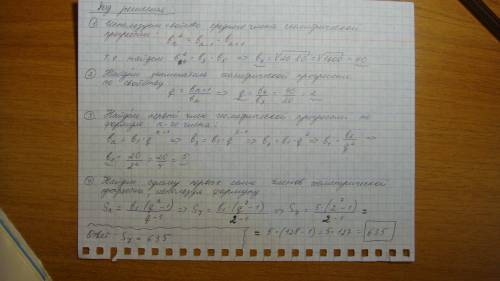 Ход решения
① Используем свойство среднего члена геометрической
прогрессии: bₙ² = bₙ₋₁ · bₙ₊₁
т.е. найдём b₄² = b₃ · b₅ ⇒ b₄ = √20·80 = √1600 = 40
② Найдём знаменатель геометрической прогрессии
по свойству
q = bₙ₊₁/bₙ ⇒ q = b₄/b₃ = 40/20 = 2
③ Найдём первый член геометрической прогрессии по
формуле n-го члена:
bₙ = b₁·qⁿ⁻¹ ⇒ b₃ = b₁·q³⁻¹ ⇒ b₃ = b₁·q² ⇒ b₁ = b₃/q² ⇒
b₁ = 20/2² = 20/4 = 5
④ Найдём сумму первых семи членов геометрической
прогрессии, используя формулу
Sₙ = b₁(qⁿ-1)/q-1 ⇒ S₇ = b₁(q⁷-1)/2-1 ⇒ S₇ = 5·(2⁷-1)/2-1 =
= 5·(128-1) = 5·127 = 635
Ответ: S₇ = 635